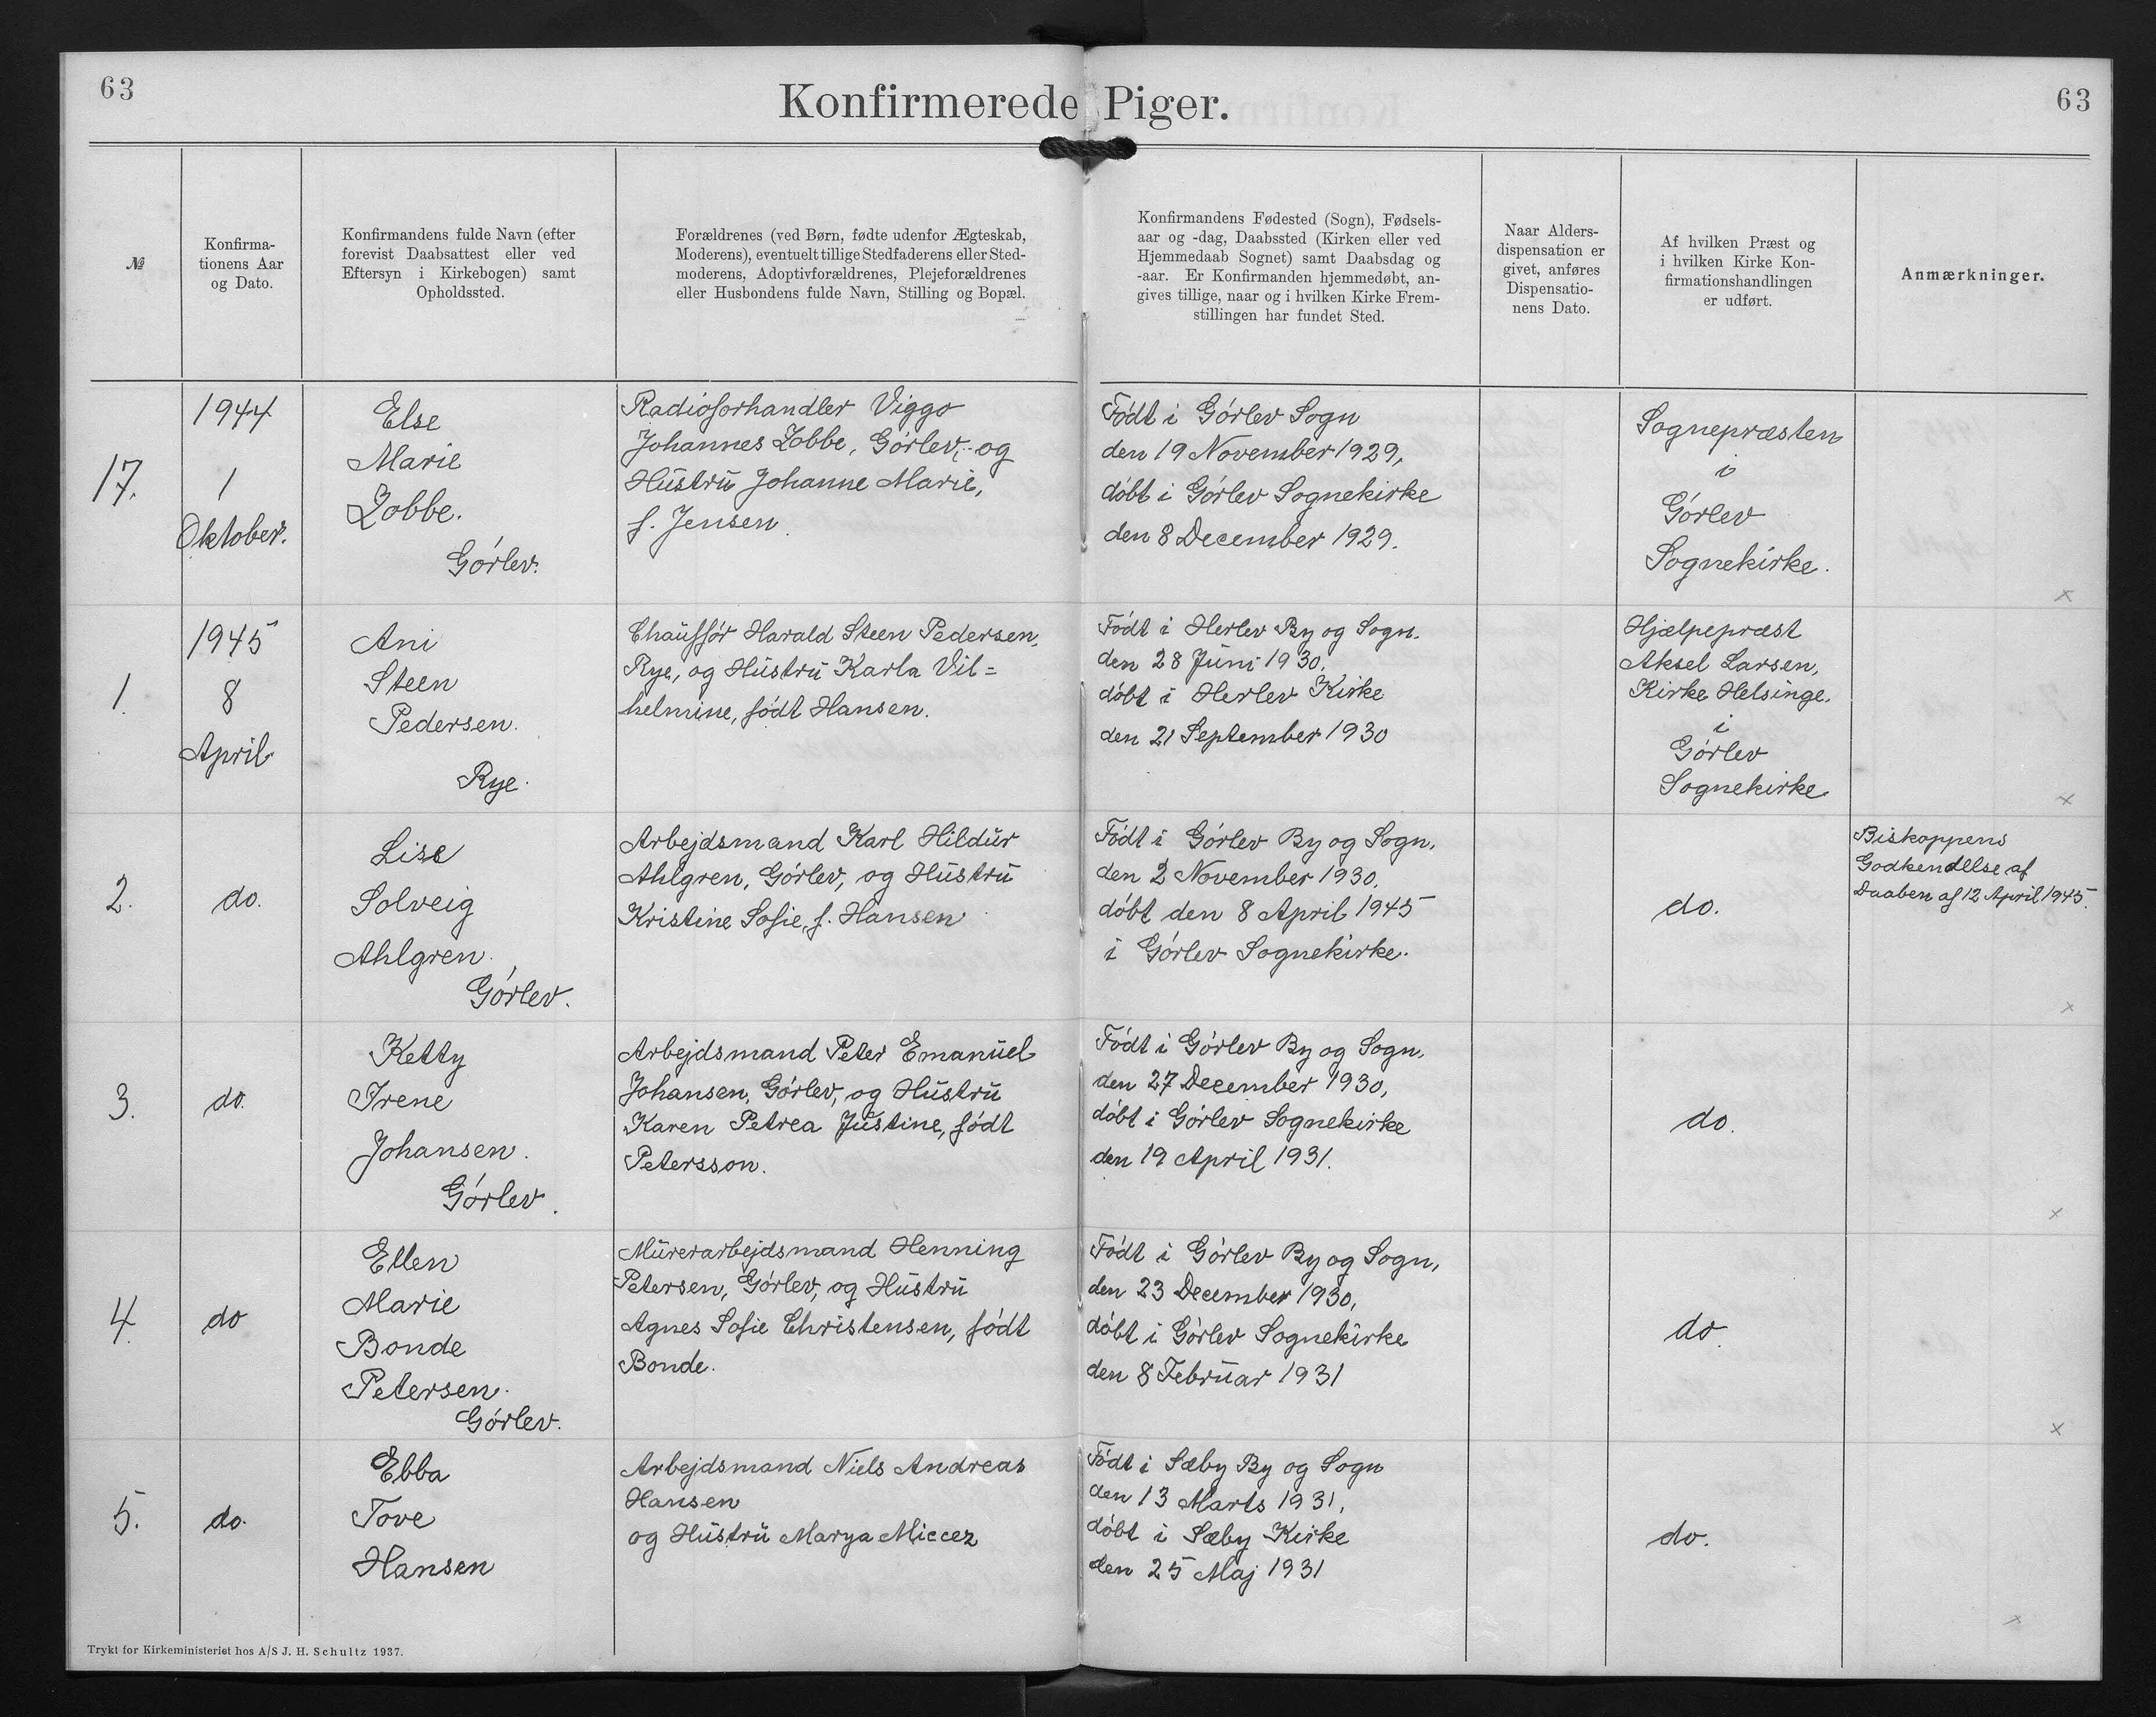 63
Konfirmerede Piger.
63
№
Konfirma-
tionens Aar
og Dato.
Konfirmandens fulde Navn (efter
forevist Daabsattest eller ved
Eftersyn i Kirkebogen) samt
Opholdssted.
Forældrenes (ved Børn, fødte udenfor Ægteskab,
Moderens), eventuelt tillige Stedfaderens eller Sted-
moderens, Adoptivforældrenes, Plejeforældrenes
eller Husbondens fulde Navn, Stilling og Bopæl.
Konfirmandens Fødested (Sogn), Fødsels-
aar og -dag, Daabssted (Kirken eller ved
Hjemmedaab Sognet) samt Daabsdag og
-aar. Er Konfirmanden hjemmedøbt, an-
gives tillige, naar og i hvilken Kirke Frem-
stillingen har fundet Sted.
Naar Alders-
dispensation er
givet, anføres
Dispensatio-
nens Dato.
Af hvilken Præst og
i hvilken Kirke Kon-
firmationshandlingen
er udført.
Anmærkninger.
17.
1944
1
Oktober.
Else
Marie
Lobbe.
Gørlev.
Radioforhandler Viggo
Johannes Lobbe, Gørlev, og
Hustru Johanne Marie,
f. Jensen.
Født i Gørlev Sogn
den 19 November 1929,
døbt i Gørlev Sognekirke
den 8 December 1929.
Sognepræsten
i
Gørlev
Sognekirke.
x
1.
1945
8
April
Ani
Steen
Pedersen.
Rye.
Chauffør Harald Steen Pedersen,
Rye, og Hustru Karla Vil=
helmine, født Hansen.
Født i Herlev By og Sogn.
den 28 Juni 1930.
døbt i Herlev Kirke
den 21 September 1930
Hjælpepræst
Aksel Larsen,
Kirke Helsinge.
i
Gørlev
Sognekirke
x
2.
do.
Lise
Solveig
Ahlgren.
Gørlev.
Arbejdsmand Karl Hildur
Ahlgren, Gørlev, og Hustru
Kristine Sofie, f. Hansen
Født i Gørlev By og Sogn,
den 2 November 1930.
døbt den 8 April 1945
i Gørlev Sognekirke.
do.
Biskoppens
Godkendelse af
Daaben af 12 April 1945.
x
3.
do.
Ketty
Irene
Johansen.
Gørlev.
Arbejdsmand Peter Emanuel
Johansen, Gørlev, og Hustru
Karen Petrea Justine, født
Petersson.
Født i Gørlev By og Sogn,
den 27 December 1930,
døbt i Gørlev Sognekirke
den 19 April 1931.
do.
x
4.
do
Ellen
Marie
Bonde
Petersen.
Gørlev.
Murerarbejdsmand Henning
Petersen, Gørlev, og Hustru
Agnes Sofie Christensen, født
Bonde.
Født i Gørlev By og Sogn,
den 23 December 1930,
døbt i Gørlev Sognekirke
den 8 Februar 1931
do.
x
5.
do.
Ebba
Tove
Hansen
Arbejdsmand Niels Andreas
Hansen
og Hustru Marya Miecez
Født i Sæby By og Sogn
den 13 Marts 1931,
døbt i Sæby Kirke
den 25 Maj 1931
do.
x
Trykt for Kirkeministeriet hos A/S J. H. Schultz 1937.